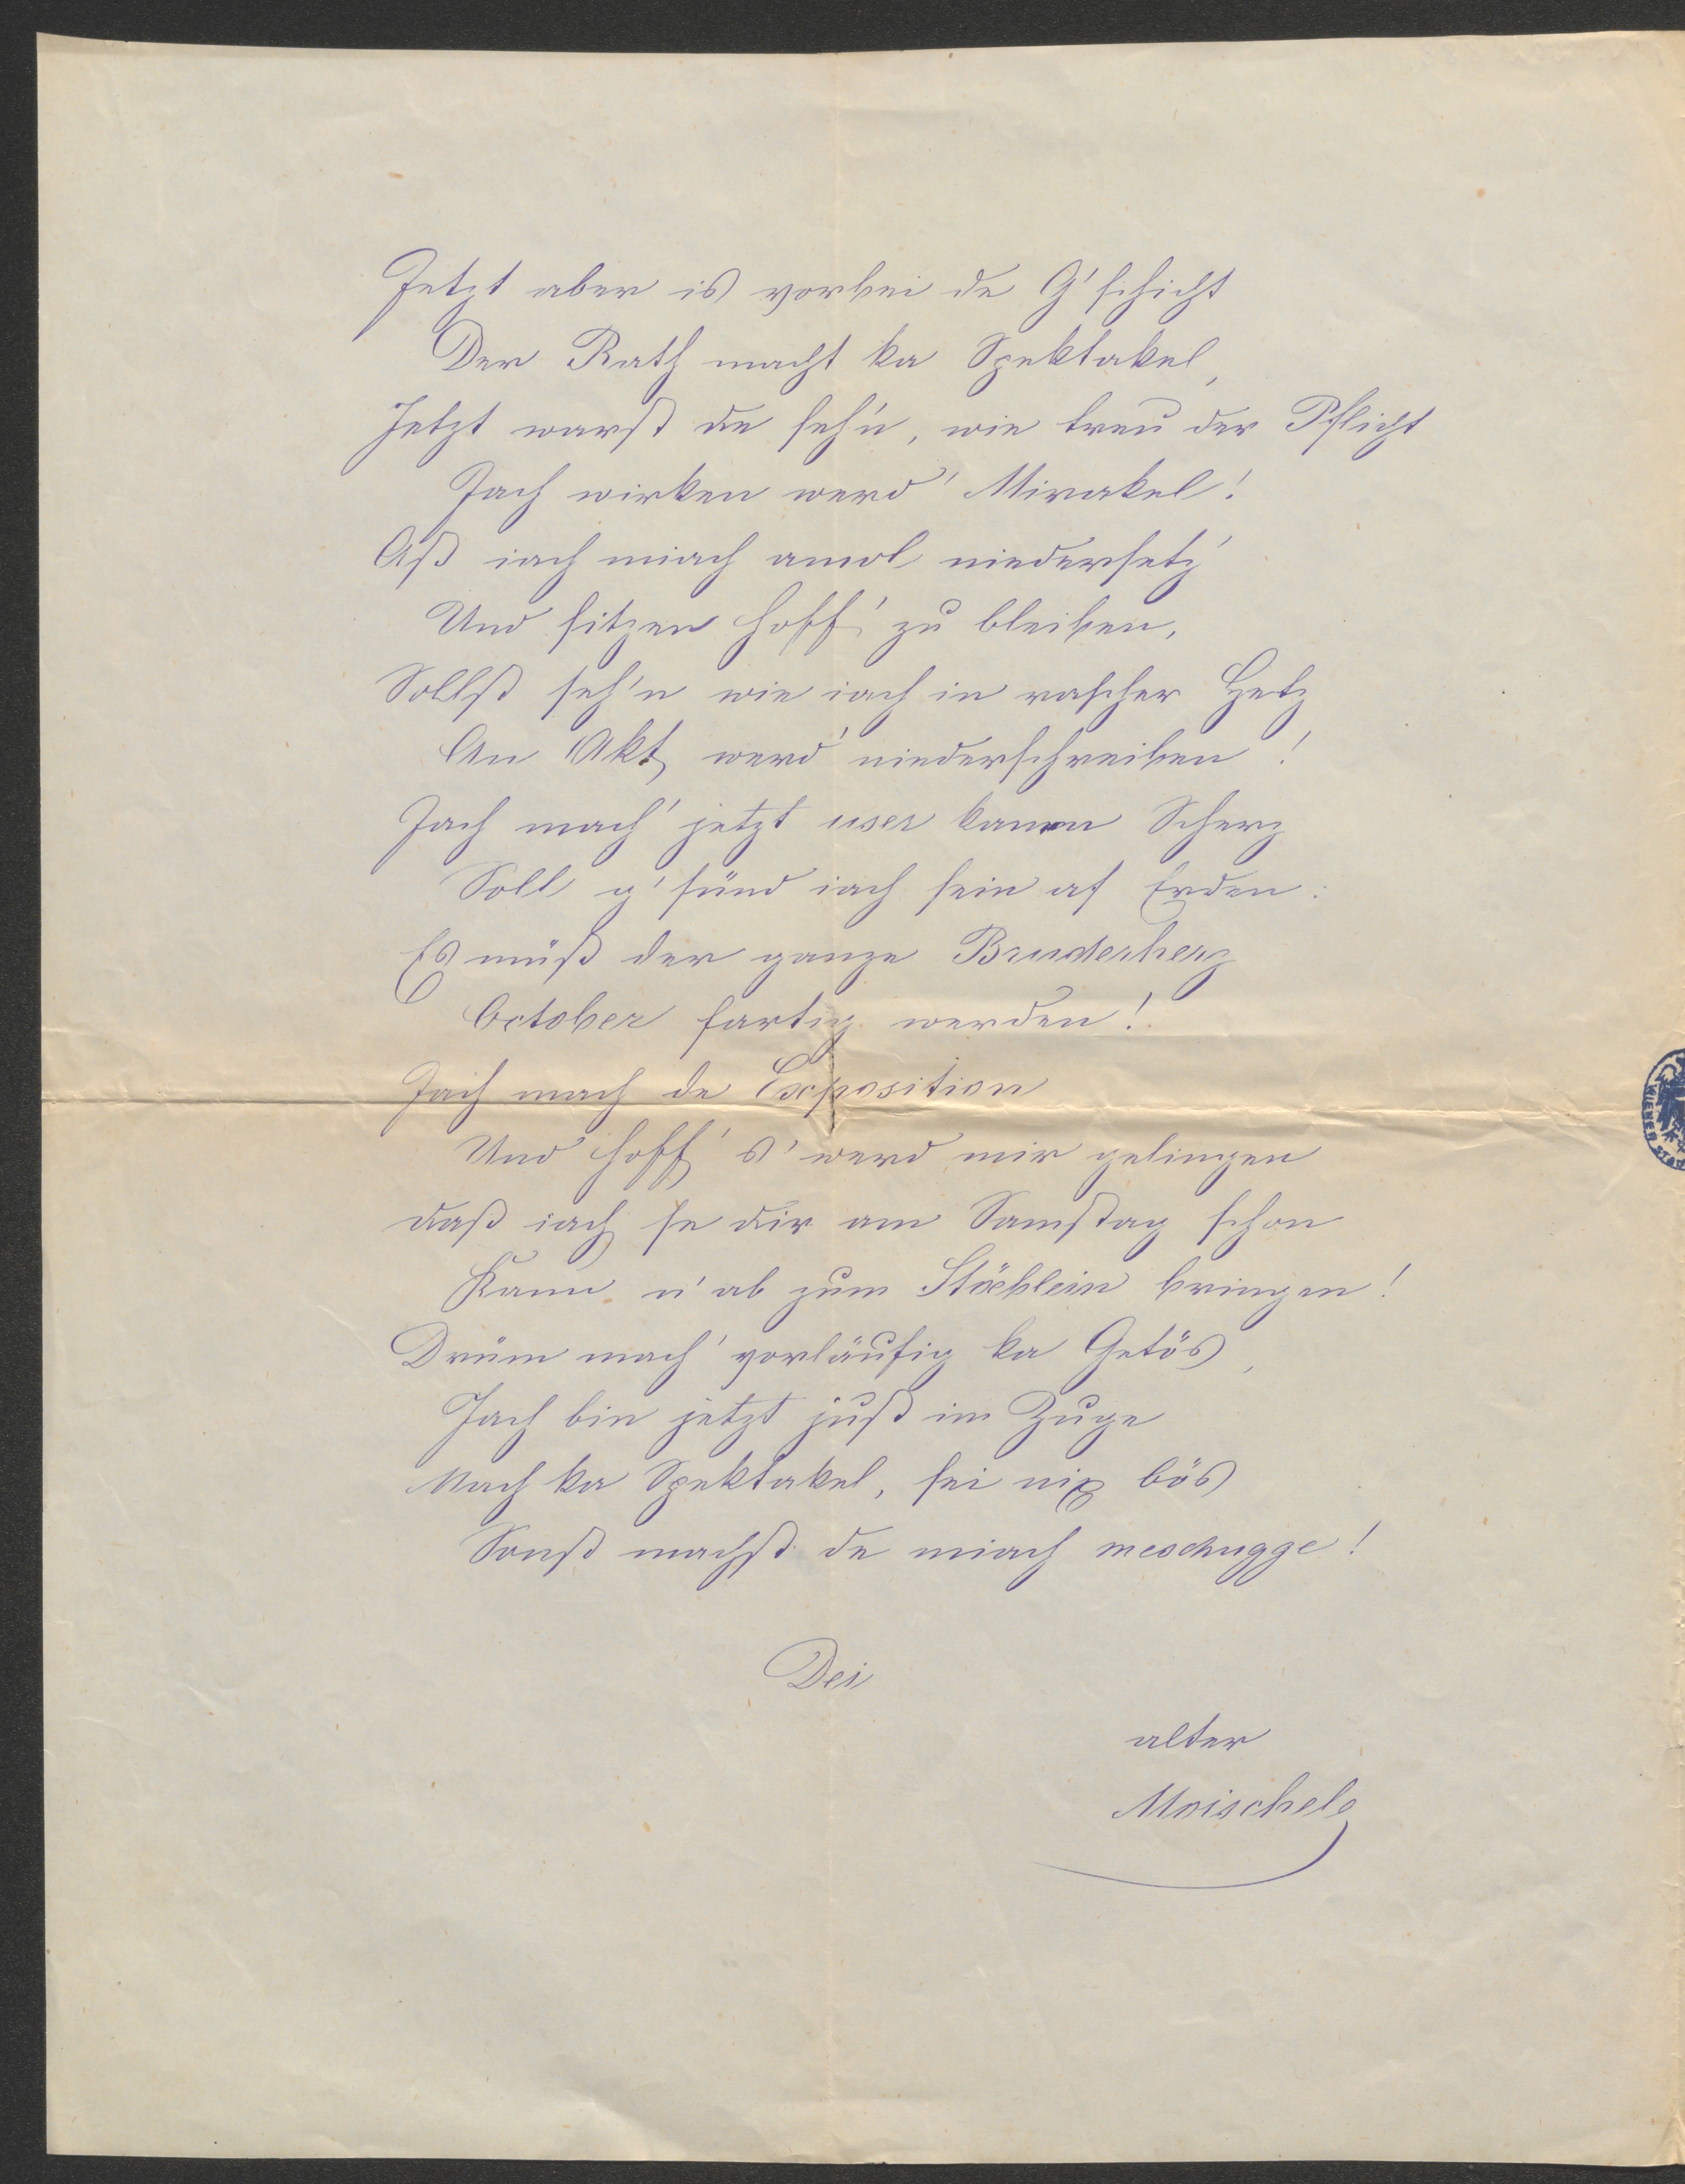 Jetzt aber is vorbei de G'schicht
Der Rath macht ka Spektakel,
Jetzt warst de seh'n, wie treu der Pflicht
Jach wirken werd' Mirakel!
Aß iach miach amol niedersetz'
Und sitzen hoff' zu bleiben,
Sollst seh'n wie iach in rascher Hetz
An Akt werd' niederschreiben!
Jach mach' jetzt user kanen Scherz
Soll g'sund iach sein af Erden:
Es muß der ganze Bruderherz
October fartig werden!
Jach mach de Exposition
Und hoff' s' werd mir gelingen
daß iach se dir am Samstag schon
Kann n' ab zum Stöcklein bringen!
Drum mach' vorläufig ka Getös,
Jach bin jetzt just im Zuge
Mach ka Spektakel, sei nix bös
Sonst machst de miach meschugge!
Dei
alter
Moischele
WIENER